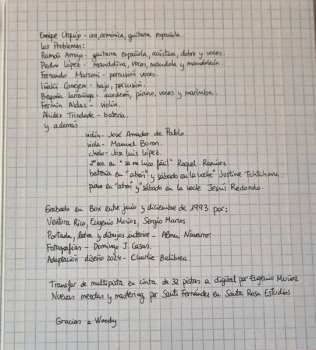 Enrique Urquijo - voz, armónica, guitarra española.
Los Problemas:
Ramón Arroyo - guitarra española, acústica, dobro y voces.
Pedro López - mandolina, voces,
Fernando - percusión voces.
- bajo, percusión.
Begoña Larrañaga - acordeón, piano, voces y marimba.
- violín.
- batería.
y además
violín - José Amador de Pablo
viola - Manuel Borom
chelo - José Luis López.
2ª voz en "se me hizo fácil" Raquel Ramírez
batería en "años" y sábado en la noche" Justine
piano en "años" y sábado en la noche Jesús Redondo.
Grabado en Box entre junio y diciembre de 1993 por:
Ventura Rico, Eugenio Muñoz, Sergio
Portada, letra y dibujos interior - Navarro.
Fotografías - Domingo J. Casas.
Adaptación diseño 2024 - Charlie
Transfer de multipista en cinta de 32 pistas a digital por Eugenio Muñoz
Nuevas mezclas y mastering por Santi Fernández en Santa Rosa Estudios
Gracias a Woody